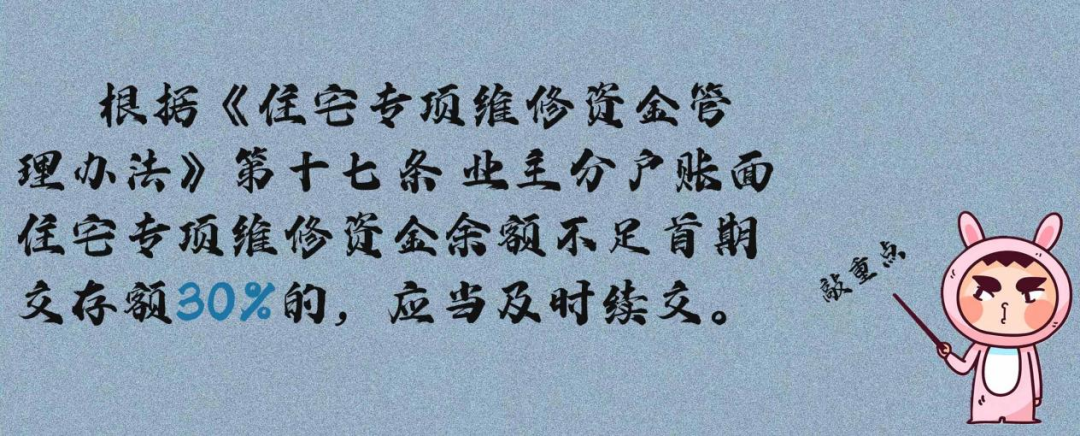 根据《住宅专项维修资金管
理办法》第十七条 业主分户账面
住宅专项维修资金余额不足首期
交存额30%的，应当及时续交。
敲重点